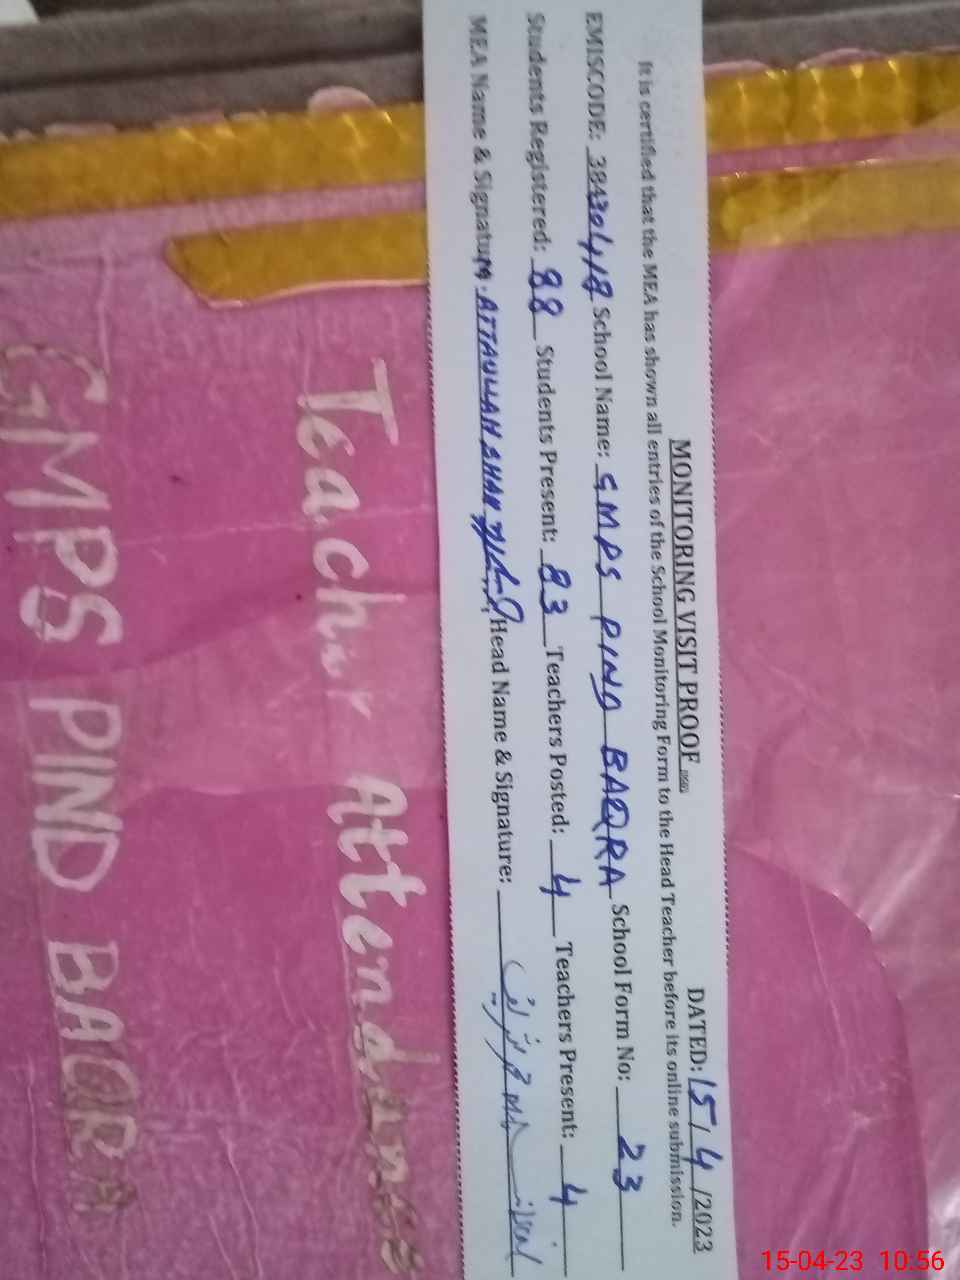 MONITORING VISIT PROOF
DATED: 15/4/2023
It is certified that the MEA has shown all entries of the School Monitoring Form to the Head Teacher before its online submission.
EMISCODE: 38430418 School Name: GMPS PIND BAQRA School Form No: 23
Students Registered: 88 Students Present: 83 Teachers Posted: 4 Teachers Present: 4
MEA Name & Signature: ATTAULLAH SHAH Head Name & Signature:
Teacher Attendance
GMPS PIND BAQRA
15-04-23 10:56